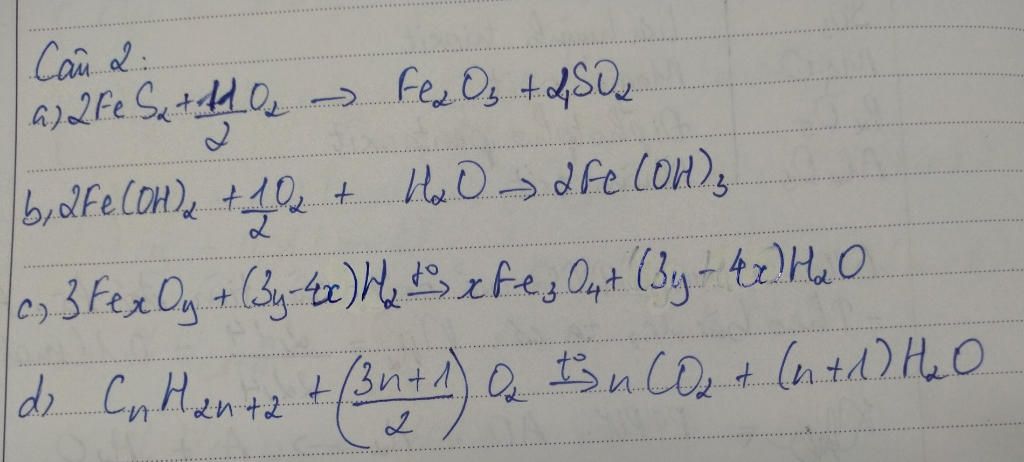 Câu 2:
a) 2FeS₂ + 11/2 O₂ → Fe₂O₃ + 4SO₂
b, 2Fe(OH)₂ + 1/2 O₂ + H₂O → 2Fe(OH)₃
c) 3FexOy + (3y-4x)H₂ t°→ xFe₃O₄ + (3y-4x)H₂O
d) CnH2n+2 + ((3n+1)/2) O₂ t°→ nCO₂ + (n+1)H₂O